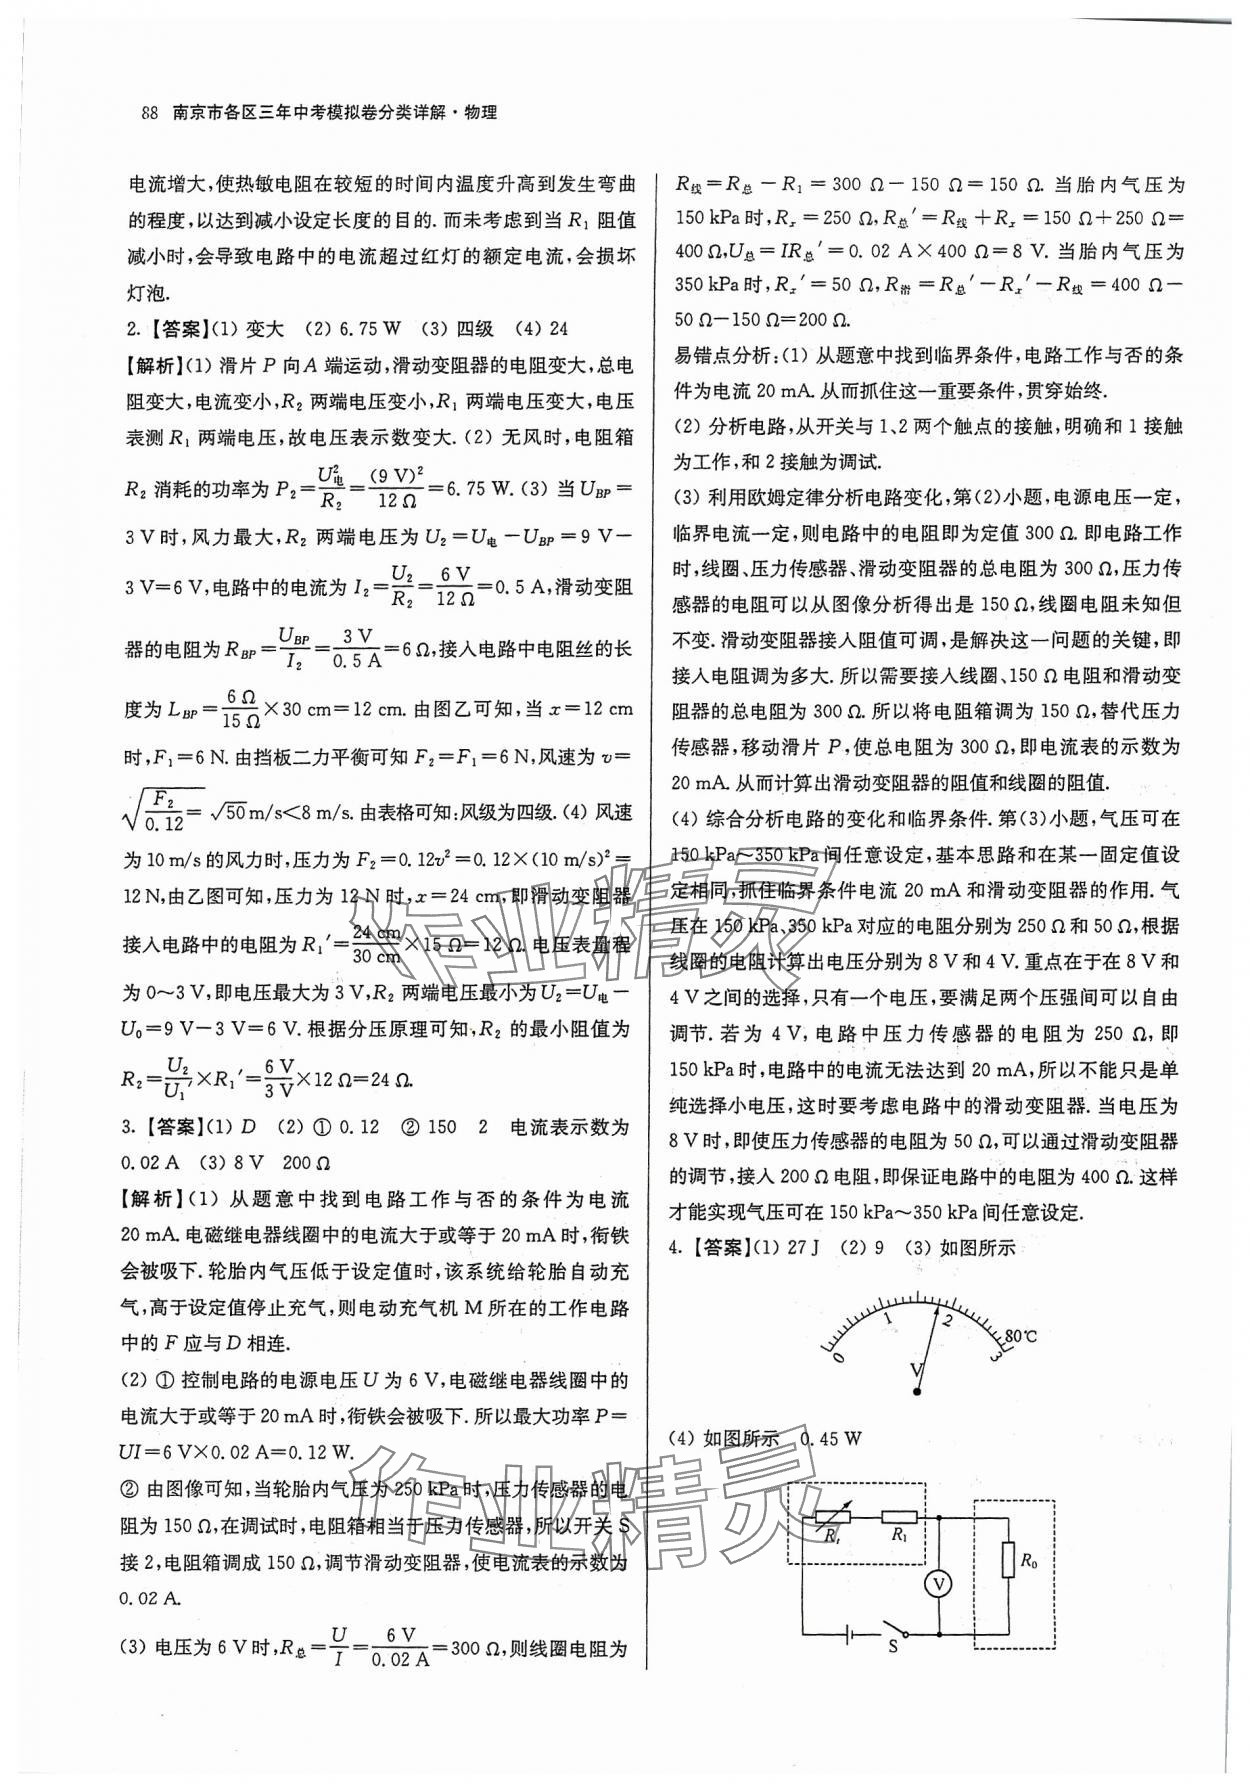 88 南京市各区三年中考模拟卷分类详解·物理
电流增大,使热敏电阻在较短的时间内温度升高到发生弯曲
的程度,以达到减小设定长度的目的.而未考虑到当 R₁ 阻值
减小时,会导致电路中的电流超过红灯的额定电流,会损坏
灯泡.
2.【答案】(1) 变大 (2) 6.75 W (3) 四级 (4) 24
【解析】(1) 滑片 P 向 A 端运动,滑动变阻器的电阻变大,总电
阻变大,电流变小,R₂ 两端电压变小,R₁ 两端电压变大,电压
表测 R₁ 两端电压,故电压表示数变大.(2) 无风时,电阻箱
R₂ 消耗的功率为 P₂=U电²/R₂=(9 V)²/12 Ω=6.75 W.(3) 当 U_BP=
3 V 时,风力最大,R₂ 两端电压为 U₂=U电-U_BP=9 V-
3 V=6 V,电路中的电流为 I₂=U₂/R₂=6 V/12 Ω=0.5 A,滑动变阻
器的电阻为 R_BP=U_BP/I₂=3 V/0.5 A=6 Ω,接入电路中电阻丝的长
度为 L_BP=6 Ω/15 Ω×30 cm=12 cm.由图乙可知,当 x=12 cm
时,F₁=6 N.由挡板二力平衡可知 F₂=F₁=6 N,风速为 v=
√(F₂/0.12)=√50 m/s<8 m/s.由表格可知:风级为四级.(4) 风速
为 10 m/s 的风力时,压力为 F₂=0.12v²=0.12×(10 m/s)²=
12 N,由乙图可知,压力为 12 N 时,x=24 cm,即滑动变阻器
接入电路中的电阻为 R₁′=24 cm/30 cm×15 Ω=12 Ω.电压表量程
为 0~3 V,即电压最大为 3 V,R₂ 两端电压最小为 U₂=U电-
U₀=9 V-3 V=6 V.根据分压原理可知,R₂ 的最小阻值为
R₂=U₂/U₁×R₁′=6 V/3 V×12 Ω=24 Ω.
3.【答案】(1) D (2) ① 0.12 ② 150 2 电流表示数为
0.02 A (3) 8 V 200 Ω
【解析】(1) 从题意中找到电路工作与否的条件为电流
20 mA.电磁继电器线圈中的电流大于或等于 20 mA 时,衔铁
会被吸下.轮胎内气压低于设定值时,该系统给轮胎自动充
气,高于设定值停止充气,则电动充气机 M 所在的工作电路
中的 F 应与 D 相连.
(2) ① 控制电路的电源电压 U 为 6 V,电磁继电器线圈中的
电流大于或等于 20 mA 时,衔铁会被吸下.所以最大功率 P=
UI=6 V×0.02 A=0.12 W.
② 由图像可知,当轮胎内气压为 250 kPa 时,压力传感器的电
阻为 150 Ω,在调试时,电阻箱相当于压力传感器,所以开关 S
接 2,电阻箱调成 150 Ω,调节滑动变阻器,使电流表的示数为
0.02 A.
(3) 电压为 6 V 时,R总=U/I=6 V/0.02 A=300 Ω,则线圈电阻为
R线=R总-R₁=300 Ω-150 Ω=150 Ω.当胎内气压为
150 kPa 时,Rₓ=250 Ω,R总′=R线+Rₓ=150 Ω+250 Ω=
400 Ω,U总=IR总′=0.02 A×400 Ω=8 V.当胎内气压为
350 kPa 时,Rₓ′=50 Ω,R滑=R总′-Rₓ′-R线=400 Ω-
50 Ω-150 Ω=200 Ω.
易错点分析:(1) 从题意中找到临界条件,电路工作与否的条
件为电流 20 mA.从而抓住这一重要条件,贯穿始终.
(2) 分析电路,从开关与 1、2 两个触点的接触,明确和 1 接触
为工作,和 2 接触为调试.
(3) 利用欧姆定律分析电路变化,第(2)小题,电源电压一定,
临界电流一定,则电路中的电阻即为定值 300 Ω.即电路工作
时,线圈、压力传感器、滑动变阻器的总电阻为 300 Ω,压力传
感器的电阻可以从图像分析得出是 150 Ω,线圈电阻未知但
不变.滑动变阻器接入阻值可调,是解决这一问题的关键,即
接入电阻调为多大.所以需要接入线圈、150 Ω 电阻和滑动变
阻器的总电阻为 300 Ω.所以将电阻箱调为 150 Ω,替代压力
传感器,移动滑片 P,使总电阻为 300 Ω,即电流表的示数为
20 mA.从而计算出滑动变阻器的阻值和线圈的阻值.
(4) 综合分析电路的变化和临界条件.第(3)小题,气压可在
150 kPa~350 kPa 间任意设定,基本思路和在某一固定值设
定相同,抓住临界条件电流 20 mA 和滑动变阻器的作用.气
压在 150 kPa、350 kPa 对应的电阻分别为 250 Ω 和 50 Ω,根据
线圈的电阻计算出电压分别为 8 V 和 4 V.重点在于在 8 V 和
4 V 之间的选择,只有一个电压,要满足两个压强间可以自由
调节.若为 4 V,电路中压力传感器的电阻为 250 Ω,即
150 kPa 时,电路中的电流无法达到 20 mA,所以不能只是单
纯选择小电压,这时要考虑电路中的滑动变阻器.当电压为
8 V 时,即使压力传感器的电阻为 50 Ω,可以通过滑动变阻器
的调节,接入 200 Ω 电阻,即保证电路中的电阻为 400 Ω.这样
才能实现气压可在 150 kPa~350 kPa 间任意设定.
4.【答案】(1) 27 J (2) 9 (3) 如图所示
0 1 2 3 80℃
V
(4) 如图所示 0.45 W
Rₜ R₁ R₀
V
S
作业精灵
作业精灵